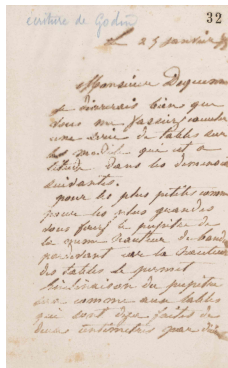 écriture de Godin
32
Le 25 janvier
Monsieur Dequenne
je désirerais bien que
vous me fassiez exécuter
une série de tables sur
le modèle qui est à
l'étude dans les dimensions
suivantes.
pour les plus petits comme
pour les plus grandes
vous ferez le pupitre de
la même hauteur de bande
par devant car la hauteur
des tables le permet
l'inclinaison du pupitre
sera comme aux tables
qui sont déjà faites de
deux centimètres par